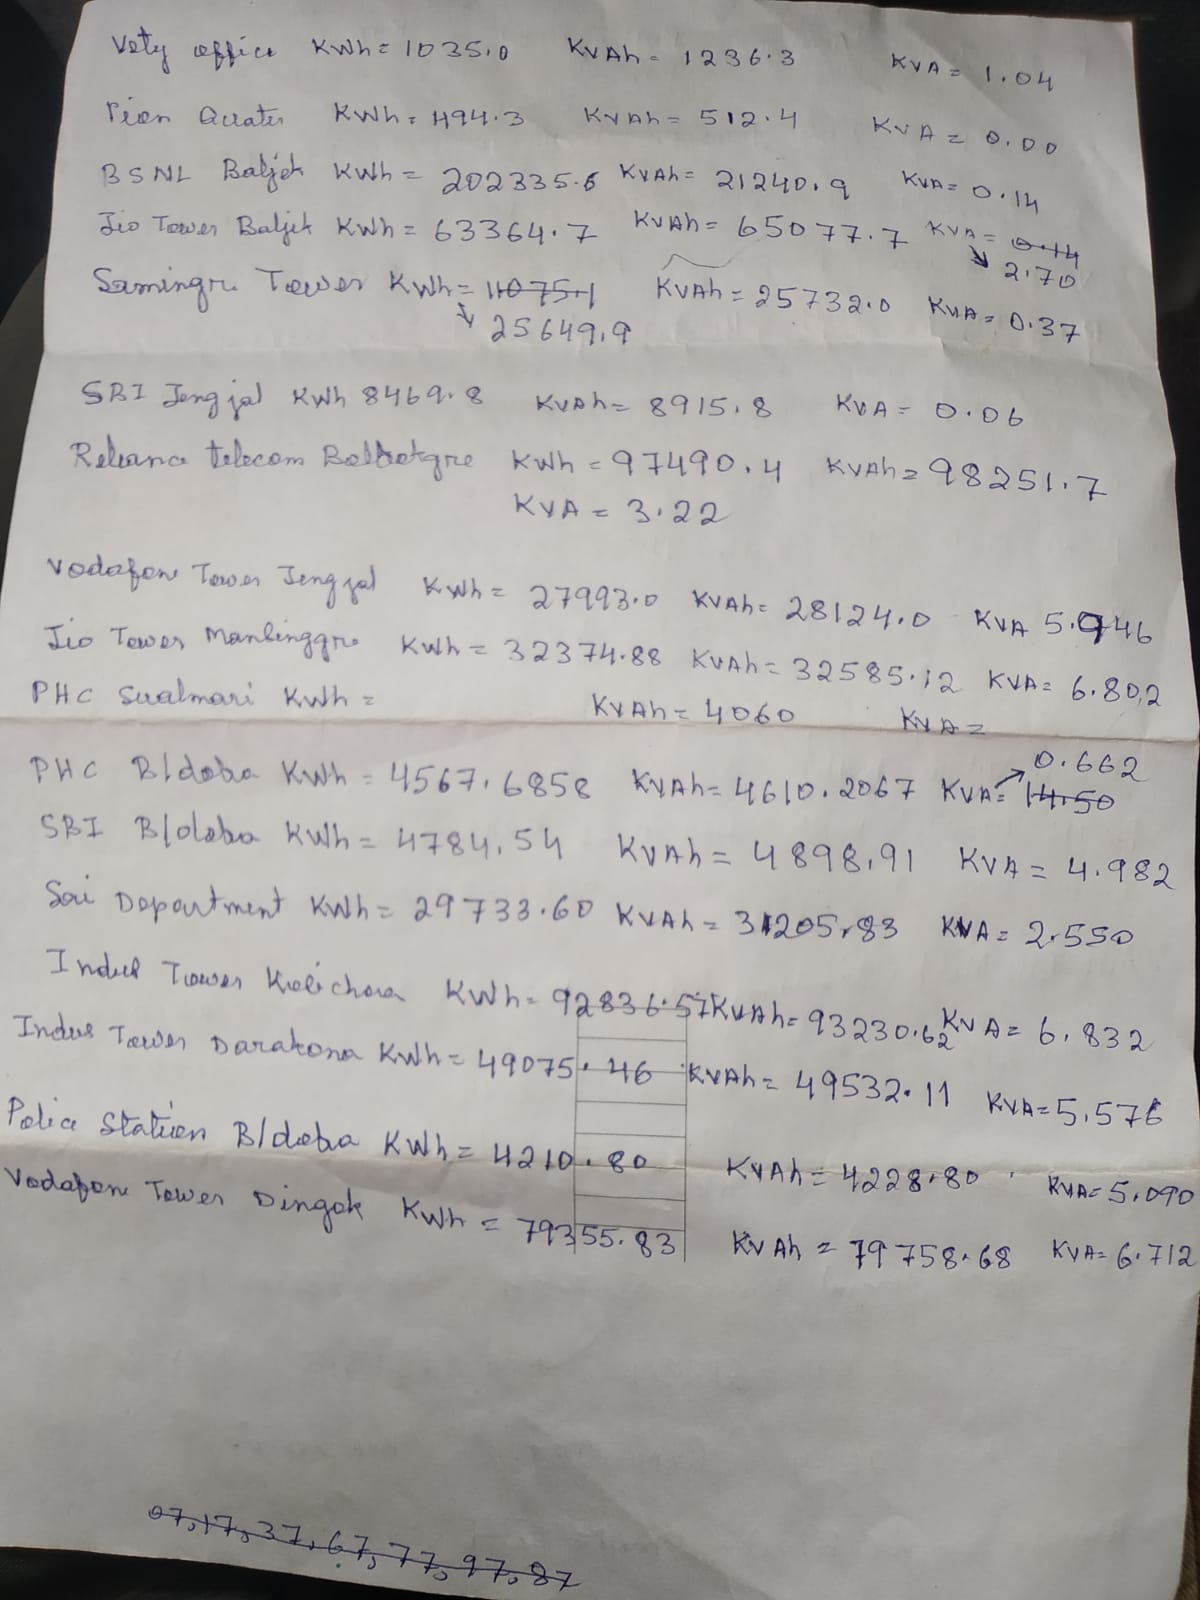 Vety office KWh = 1035.0 KVAh = 1236.3 KVA = 1.04
Pion Quater KWh = 494.3 KVAh = 512.4 KVA = 0.00
BSNL Baljek KWh = 202335.6 KVAh = 21240.9 KVA = 0.14
Jio Tower Baljek KWh = 63364.7 KVAh = 65077.7 KVA = 0.14
2.70
Samingre Tower KWh = 11075.1 KVAh = 25732.0 KVA = 0.37
25649.9
SBI Jengjal KWh 8469.8 KVAh = 8915.8 KVA = 0.06
Reliance telecom KWh = 97490.4 KVAh = 98251.7
KVA = 3.22
Vodafone Tower Jengjal KWh = 27993.0 KVAh = 28124.0 KVA 5.946
Jio Tower Manlinggre KWh = 32374.88 KVAh = 32585.12 KVA = 6.802
PHC Sualmari KWh = KVAh = 4060 KVA =
0.662
PHC B/doba KWh = 4567.6858 KVAh = 4610.2067 KVA = 14.50
SBI B/doba KWh = 4784.54 KVAh = 4898.91 KVA = 4.982
Soi Department KWh = 29733.60 KVAh = 31205.83 KVA = 2.550
Indus Tower Kalichora KWh = 92836.57 KVAh = 93230.62 KVA = 6.832
Indus Tower Darakona KWh = 49075.46 KVAh = 49532.11 KVA = 5.576
Police Station B/doba KWh = 4210.80 KVAh = 4228.80 KVA = 5.090
Vodafone Tower Dingok KWh = 79355.83 KVAh = 79758.68 KVA = 6.712
07,17,37,67,77,97,87